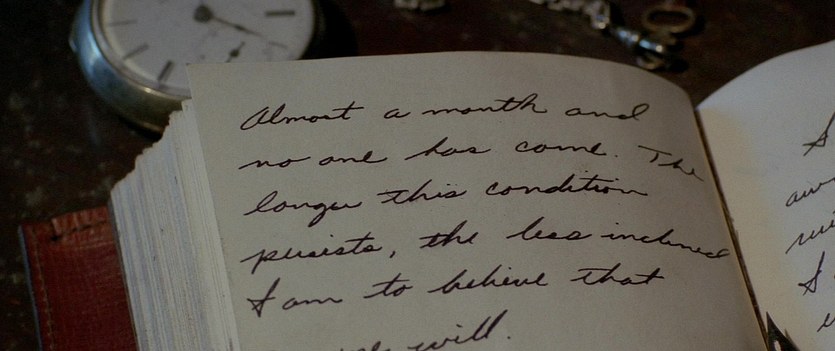 Almost a month and
no one has come. The
longer this condition
persists, the less inclined
I am to believe that
will.